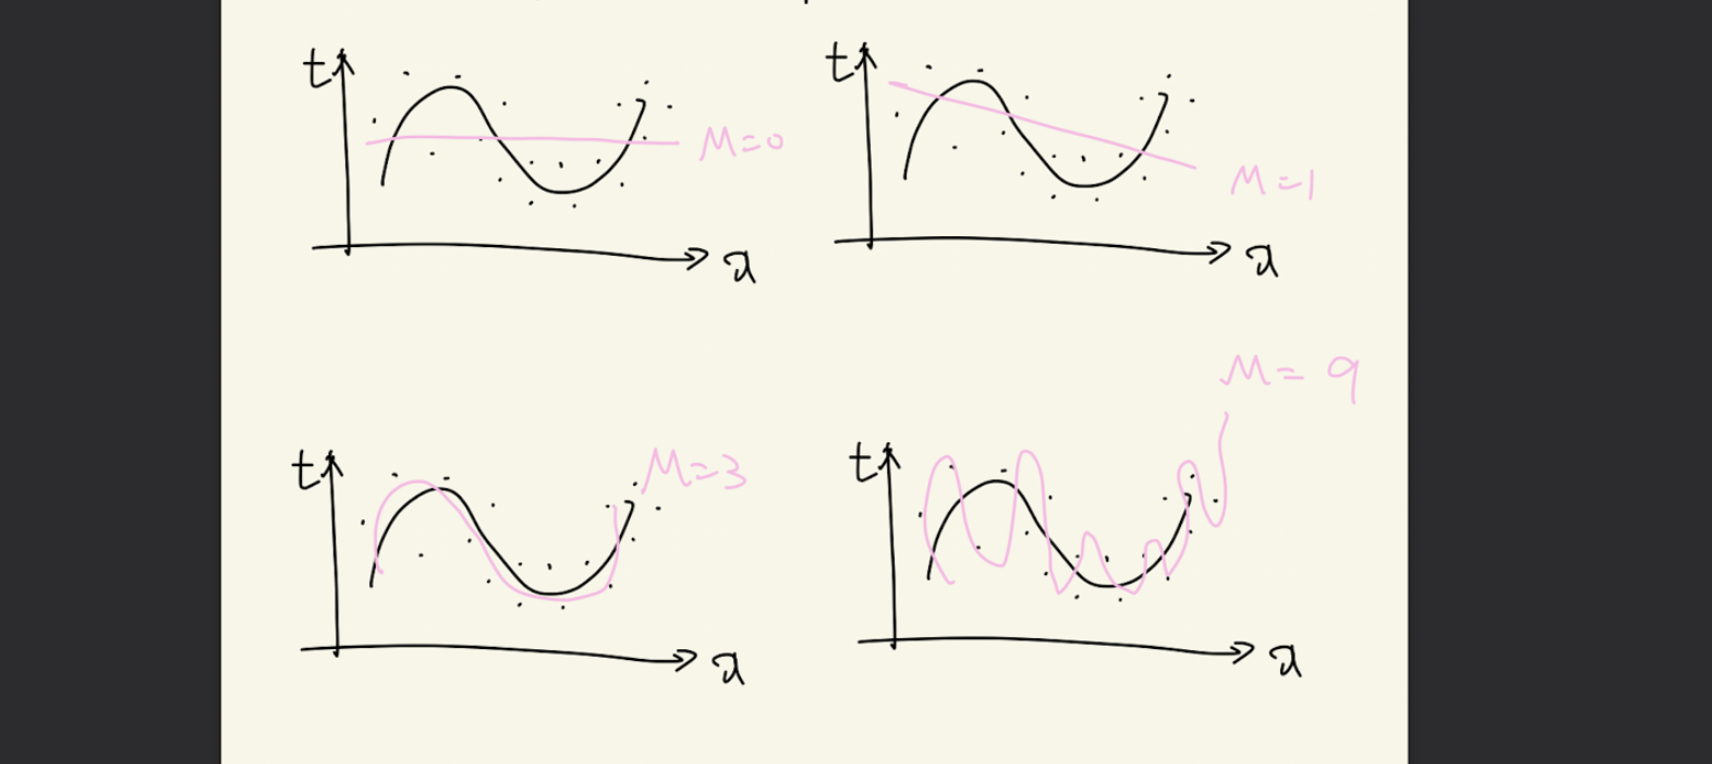 t
M=0
x
t
M=1
x
t
M=3
x
M= 9
t
x